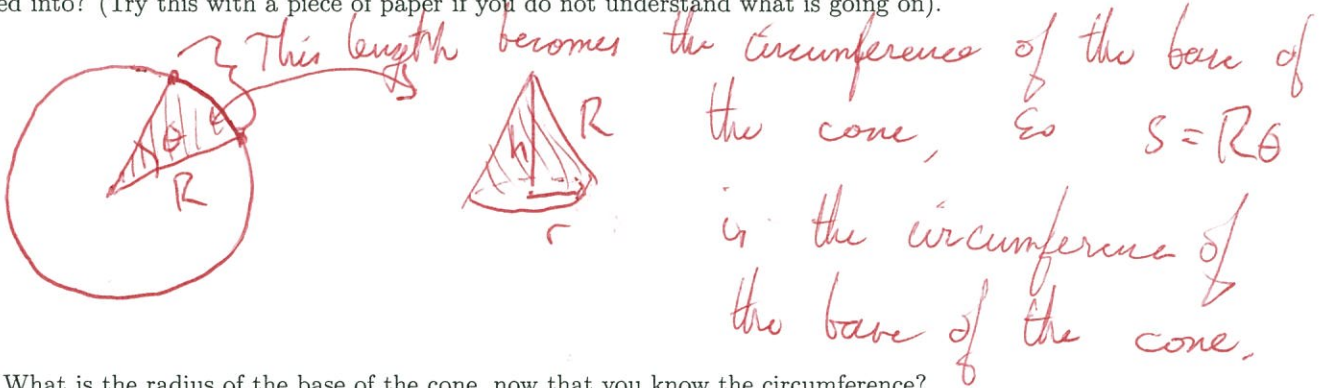 ed into? (Try this with a piece of paper if you do not understand what is going on).
This length becomes the circumference of the base of
the cone, so S = Rθ
is the circumference of
the base of the cone.
θ
R
h
R
r
What is the radius of the base of the cone, now that you know the circumference?